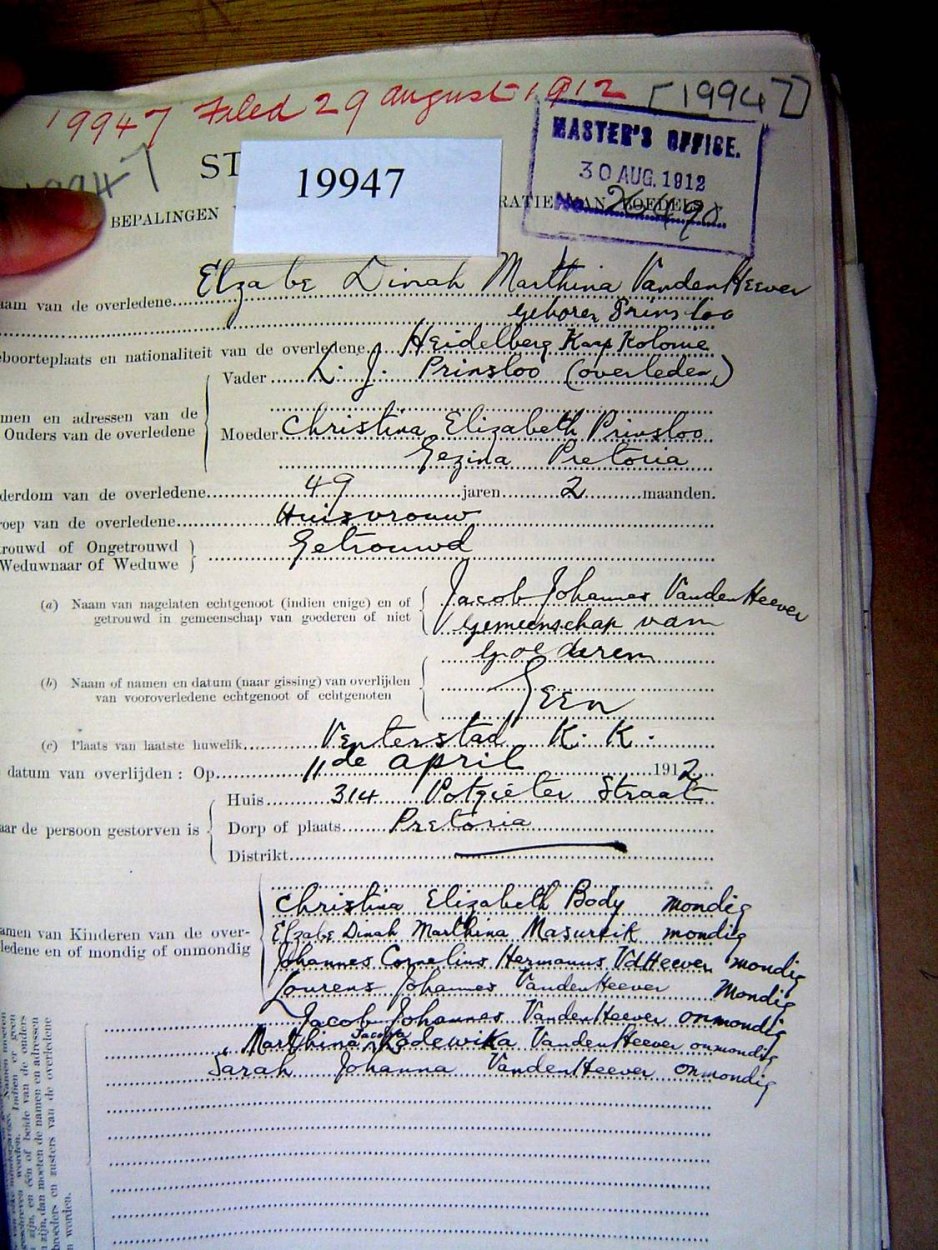 19947 Filed 29 August 1912 [19947]
MASTER'S OFFICE.
30 AUG. 1912
No.
19947
ST
19947
BEPALINGEN RATIE VAN BOEDELS
aam van de overledene Elzabe Dinah Marthina VandenHeever
geboren Prinsloo
eboorteplaats en nationaliteit van de overledene Heidelberg Kaap Kolonie
Vader L. J. Prinsloo (overleden)
men en adressen van de
Ouders van de overledene
Moeder Christina Elizabeth Prinsloo
Gezina Pretoria
derdom van de overledene 49 jaren 2 maanden.
roep van de overledene Huisvrouw
rouwd of Ongetrouwd
Weduwnaar of Weduwe
Getrouwd
(a) Naam van nagelaten echtgenoot (indien enige) en of
getrouwd in gemeenschap van goederen of niet
Jacob Johannes VandenHeever
Gemeenschap van
Goederen
(b) Naam of namen en datum (naar gissing) van overlijden
van vooroverledene echtgenoot of echtgenoten
Geen
(c) Plaats van laatste huwelik Venterstad K. K.
datum van overlijden : Op 11de april 1912
aar de persoon gestorven is
Huis 314 Potgieter Straat
Dorp of plaats Pretoria
Distrikt
amen van Kinderen van de over-
ledene en of mondig of onmondig
Christina Elizabeth Body mondig
Elzabe Dinah Marthina Masureik mondig
Johannes Cornelius Hermanus VdHeever mondig
Lourens Johannes VandenHeever Mondig
Jacob Johannes VandenHeever onmondig
Marthina Jacoba Lodewika VandenHeever onmondig
Sarah Johanna VandenHeever onmondig
zijn, en één of beide van de ouders
n zijn, dan moeten de namen en adressen
broeders en zusters van de overledene
n worden.